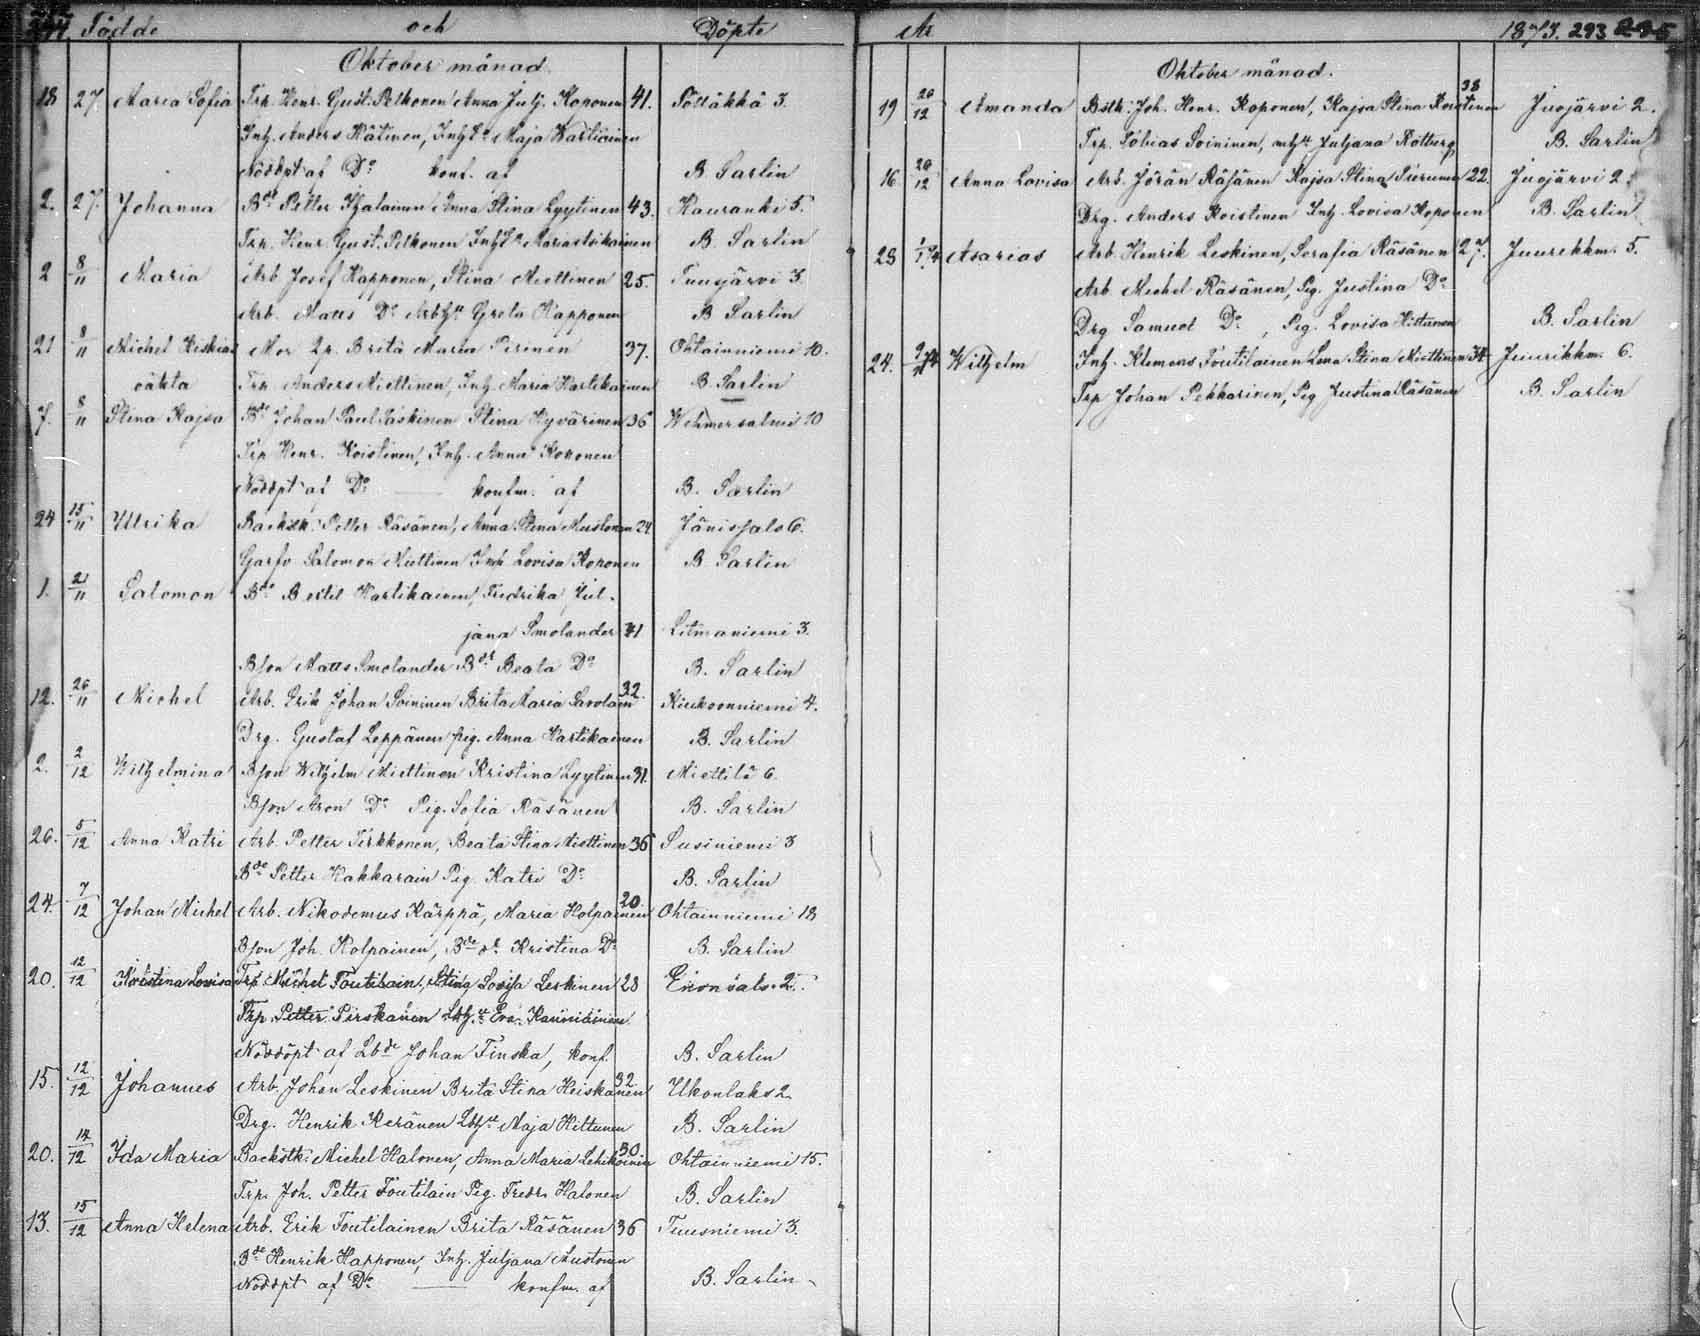 Födde och Döpte
Oktober månad.
18 27. Maria Sofia Trp. Henr. Gust. Pelkonen Anna Julj. Koponen 41. Pölläkkä 3.
Inh. Anders Rätinen, Maja
Nöddpt af Do konf. af B. Sarlin
2. 27. Johanna Bde Petter Anna Stina Lyytinen 43. Kauranki 5.
Trp. Henr. Gust. Pelkonen B. Sarlin
2 8/11 Maria Arb Josef Happonen, Stina Miettinen 25. Tuusjärvi 3.
Arb. Matts Do Greta Happonen B Sarlin
21 8/11 Michel Kr. Brita Maria Pirinen 37. Ohtainniemi 10.
oäkta Trp Anders Miettinen, Inh. Maria Hartikainen B. Sarlin
7. 8/11 Stina Kajsa Bde Johan Paul Laskinen Stina Hyvärinen 36 Wehmersalmi 10
Trp Henr. Koistinen, Inh. Anna Koponen
Nöddpt af Do konfm. af B. Sarlin
24 15/11 Ulrika Backstk: Petter Räsänen, Anna Stina Mustonen 24. Jänissalo 6.
Salomon Miettinen Lovisa Koponen B Sarlin
1. 21/11 Salomon Bde Bertil Hartikainen, Fredrika Jul-
jana Smolander 41 Litmaniemi 3.
Bson Matts Smolander Beata Do B. Sarlin
12. 26/11 Michel Arb. Erik Johan Soininen Brita Maria Savolain 32. Kiukoonniemi 4.
Drg. Gustaf Leppänen pig. Anna Hartikainen B. Sarlin
2. 2/12 Wilhelmina Bson Wilhelm Miettinen Kristina Lyytinen 31. Miettilä 6.
Bson Aron Do Pig. Sofia Räsänen B. Sarlin
26. 5/12 Anna Katri Arb. Petter Tirkkonen, Beata Stina Miettinen 36 Susiniemi 3
Bde Petter Hakkarain Pig. Katri Do B. Sarlin
24. 7/12 Johan Michel Arb. Nikodemus Kärppä, Maria Holpainen 20. Ohtainniemi 18
Bson Joh. Holpainen, Bde dr Kristina Do B. Sarlin
20. 12/12 Kristina Lovisa Trp. Michel Toutilain, Stina Lovisa Leskinen 28 Enonsalo 2.
Trp. Petter Pirskanen Eva
Nöddöpt af Lbde Johan Finska, konf. B. Sarlin
15. 12/12 Johannes Arb. Johan Leskinen Brita Stina Heiskanen 32 Ukonlaks 2.
Drg. Henrik Keränen Maja Hiltunen B. Sarlin
20. 14/12 Ida Maria Backstk: Michel Halonen, Anna Maria Lehikoinen 30. Ohtainniemi 15.
Trp. Joh. Petter Toutilain Pig. Fredr. Halonen B. Sarlin
13. 15/12 Anna Helena Arb. Erik Toutilainen Brita Räsänen 36 Tuusniemi 3.
Bde Henrik Happonen, Inh. Juljana Mustonen
Nöddpt af Do konfm. af B. Sarlin
År 1873. 293
Oktober månad.
19 20/12 Amanda Bstk: Joh. Henr. Koponen, Kajsa Stina Koistinen 38 Juojärvi 2.
Trp. Tobias Soininen, Juljana Rotberg B. Sarlin
16. 20/12 Anna Lovisa Arb. Jöran Räsänen Kajsa Stina 22. Juojärvi 2.
Drg. Anders Koistinen Inh. Lovisa Koponen B. Sarlin
28 Asarias Arb. Henrik Leskinen, Serafia Räsänen 27. Juurikkm. 5.
Arb. Michel Räsänen, Pig. Justina Do
Drg Samuel Do, Pig. Lovisa Hiltunen B. Sarlin
24. Wilhelm Inh. Klemens Toutilainen Lena Stina Miettinen 34 Juurikkm. 6.
Trp Johan Pekkarinen, Pig Justina Räsänen B. Sarlin